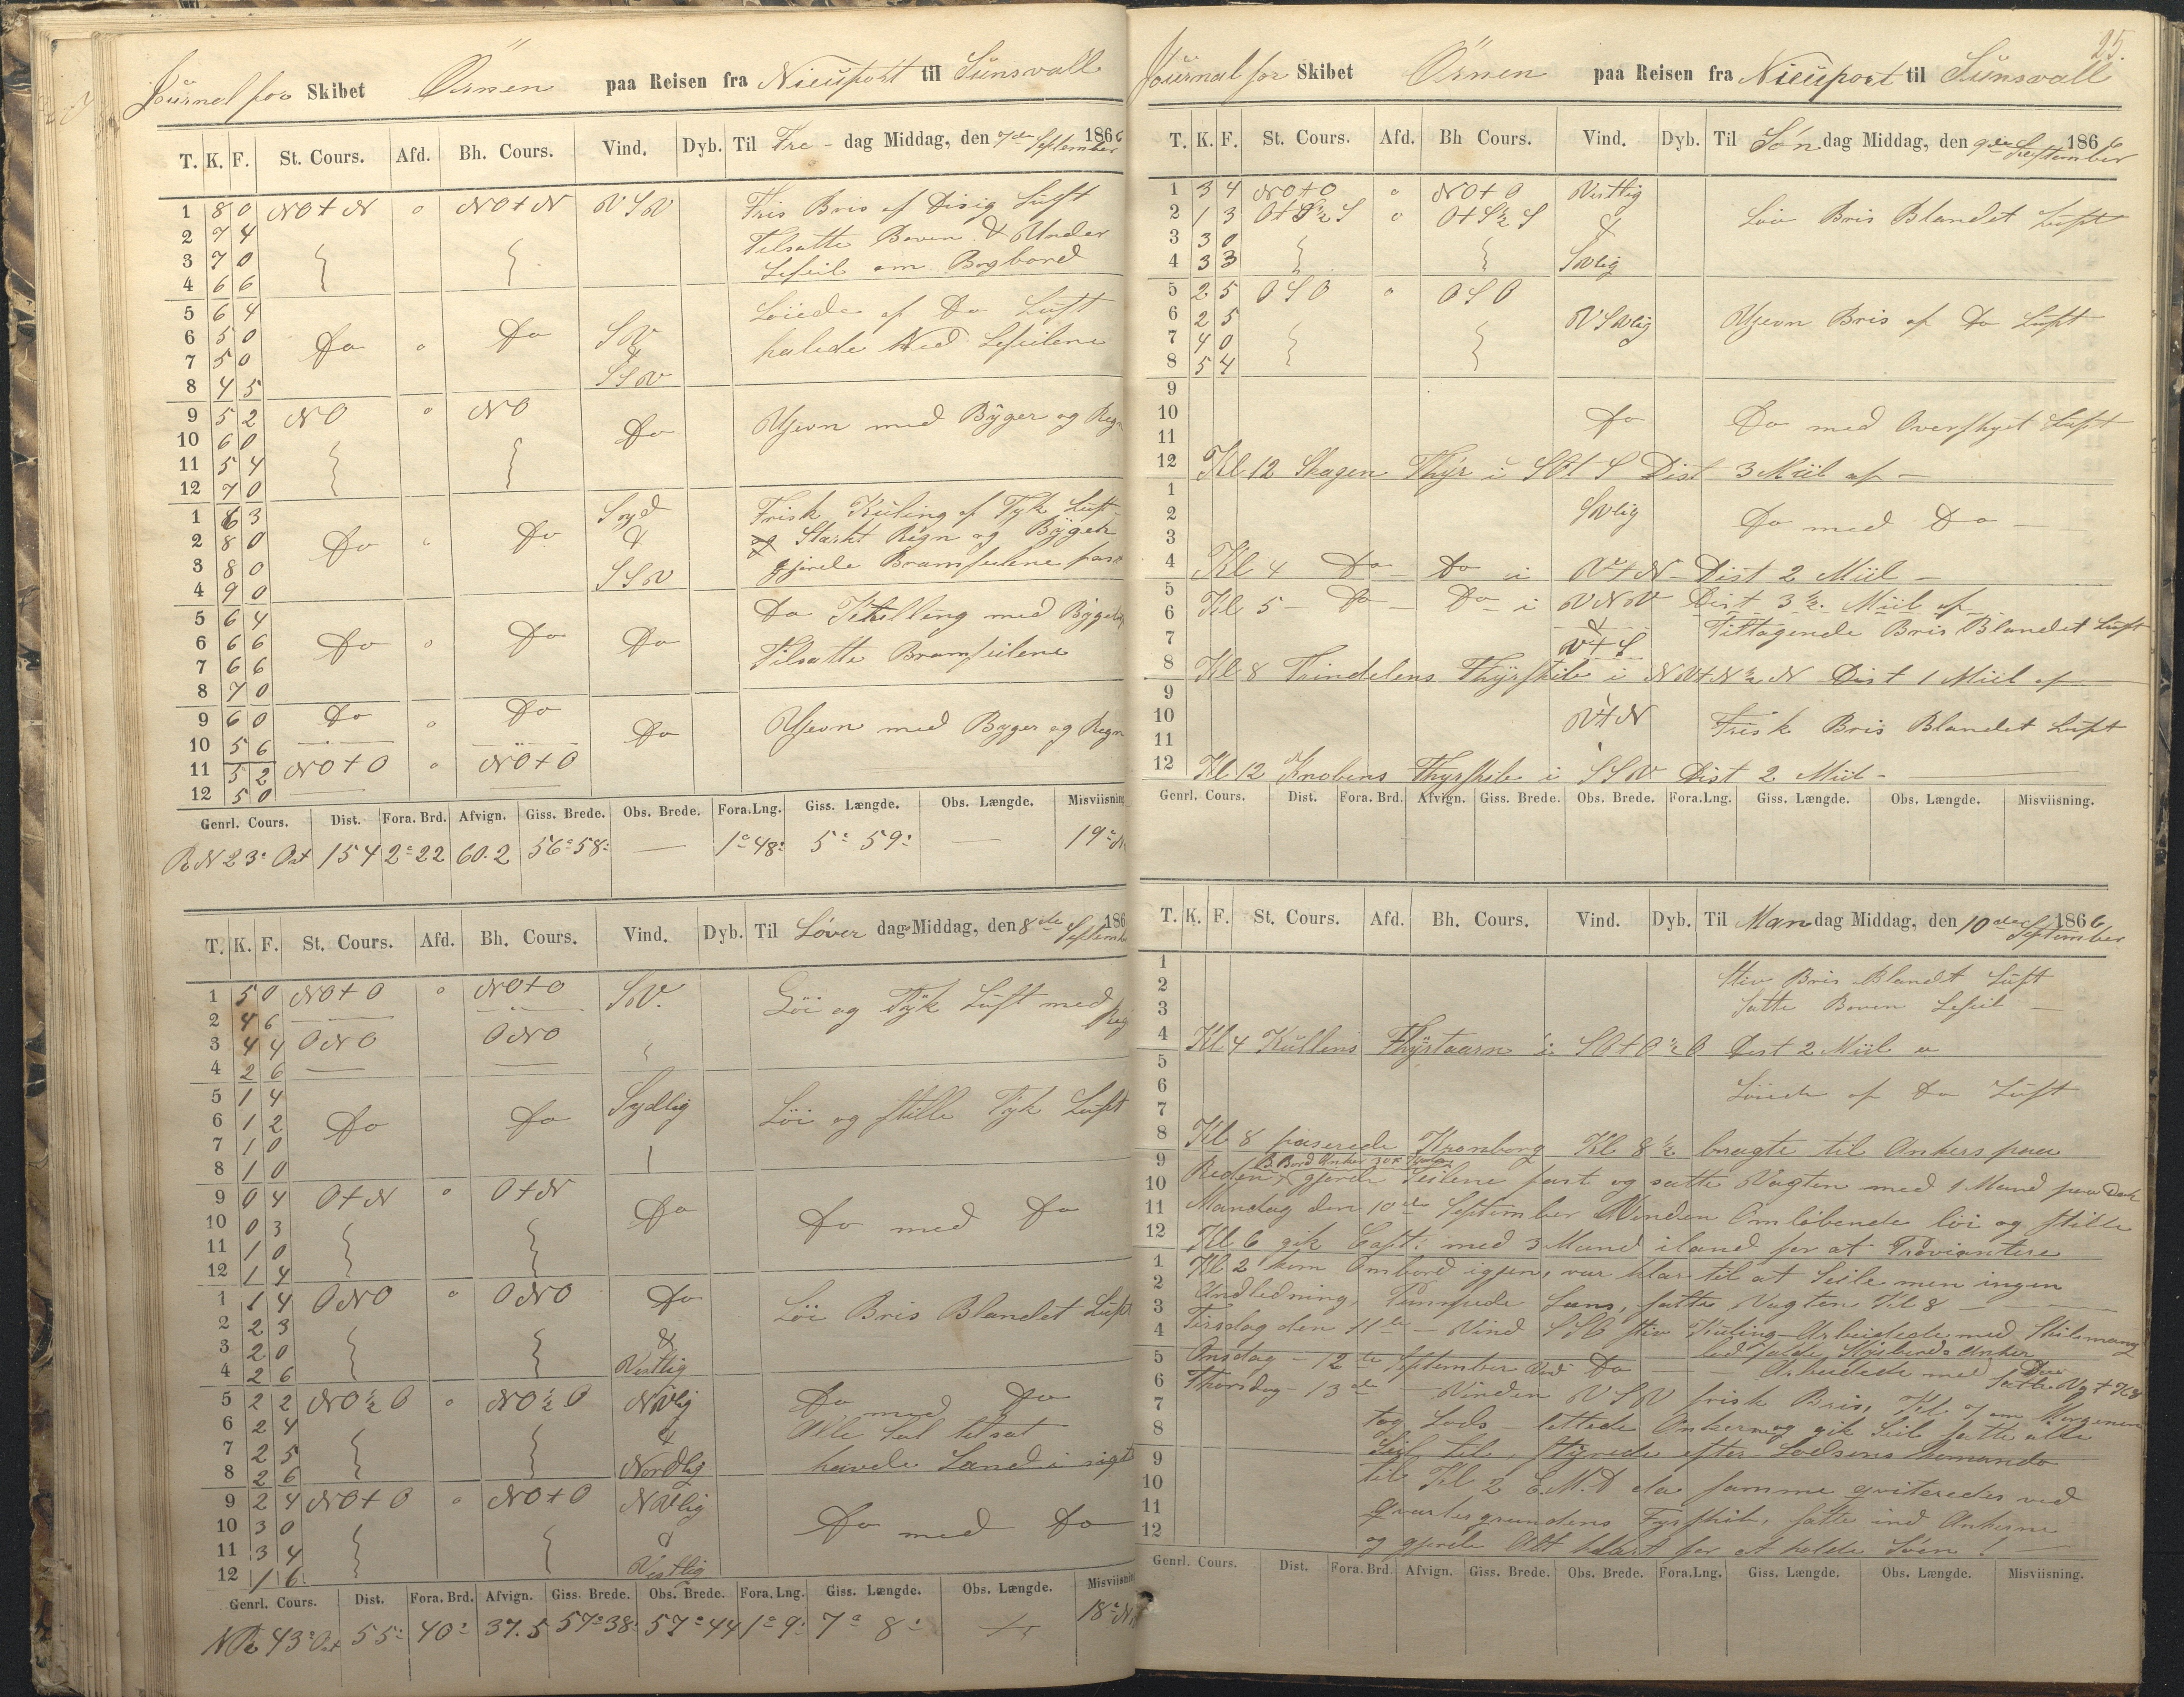 Journal for Skibet Ørnen paa Reisen fra Nieuport til Sunsvall
T. K. F. St. Cours. Afd. Bh. Cours. Vind. Dyb. Til Fre- dag Middag, den 7de September 1866
1 8 0 NO t N " NO t N VSV Fris Bris af Disig Luft
2 7 4 Tilsatte Boven & Under
3 7 0 Leseil om Bagbord
4 6 6
5 6 4 Løiede af Do Luft
6 5 0 Do " Do SV
7 5 0 & halede Ned Leseilene
8 4 5 SSV
9 5 2 NO " NO Do Ujevn med Byger og Regn
10 6 0
11 5 4
12 7 0
1 6 3 Syd Frisk Kuling af Tyk Luft
2 8 0 Do " Do & og Stærkt Regn og Byger
3 8 0 SSV gjorde Bramseilene fast
4 9 0
5 6 4 Do med Byger
6 6 6 Do " Do Do
7 6 6 Tilsatte Bramseilene
8 7 0
9 6 0 Do " Do Do Ujevn med Byger og Regn
10 5 6
11 5 2 NO t O " NO t O
12 5 0
Genrl. Cours. Dist. Fora. Brd. Afvign. Giss. Brede. Obs. Brede. Fora. Lng. Giss. Længde. Obs. Længde. Misviisning
N 23° Ost 154 2° 22 60.2 56° 58' — 1° 48' 5° 59' — 19°
T. K. F. St. Cours. Afd. Bh. Cours. Vind. Dyb. Til Løver dag Middag, den 8de September 186
1 5 0 NO t O " NO t O SV. Løi og Tyk Luft med Reg
2 4 6
3 4 4 ONO ONO
4 2 6
5 1 4 Sydlig Løi og stille Tyk Luft
6 1 2 Do Do
7 1 0
8 1 0
9 0 4 O t N " O t N Do Do med Do
10 0 3
11 1 0
12 1 4
1 1 4 ONO " ONO Do Løi Bris Blandet Luft
2 2 3 &
3 2 0 Vestlig
4 2 6
5 2 2 NO ½ O " NO ½ O NVlig Do med Do
6 2 4 & Alle Seil tilsat
7 2 5 Nordlig havde Land i sigte
8 2 6
9 2 4 NO t O " NO t O NVlig Do med Do
10 3 0 &
11 3 4 Vestlig
12 1 6
Genrl. Cours. Dist. Fora. Brd. Afvign. Giss. Brede. Obs. Brede. Fora. Lng. Giss. Længde. Obs. Længde. Misviisning
43° Ost 55' 40' 37.5 57° 38' 57° 44 1° 9' 7° 8' 18°
25.
Journal for Skibet Ørnen paa Reisen fra Nieuport til Sunsvall
T. K. F. St. Cours. Afd. Bh Cours. Vind. Dyb. Til Søn dag Middag, den 9de September 1866
1 3 4 NO t O " NO t O Vestlig Løi Bris Blandet Luft
2 1 3 O t S ½ S " O t S ½ S &
3 3 0 SVlig
4 3 3
5 2 5 OSO " OSO
6 2 5 VSVlig Ujevn Bris af Do Luft
7 4 0
8 5 4
9
10 Do Do med Overskyet Luft
11
12 Kl 12 Skagen Fhyr i SO t S Dist 3 Miil af —
1
2 SVlig Do med Do —
3
4 Kl 4 Do — Do i V t N — Dist 2 Miil —
5 Kl 5 — Do — Do — i VNV Dist 3 ½ Miil af
6 & Tiltagende Bris Blandet Luft
7 V t S
8 Kl 8 Trindelens Fhyrskib i NV t N ½ N Dist 1 Miil af
9
10 V t N Frisk Bris Blandet Luft
11
12 Kl 12 Knobens Fhyrskib i SSV Dist 2 Miil —
Genrl. Cours. Dist. Fora. Brd. Afvign. Giss. Brede. Obs. Brede. Fora. Lng. Giss. Længde. Obs. Længde. Misviisning.
T. K. F. St. Cours. Afd. Bh. Cours. Vind. Dyb. Til Man dag Middag, den 10de September 1866
1 Stiv Bris Blandt Luft
2 Satte Boven Leseil —
3
4 Kl 4 Kullens Fhyrtaarn i SO t O ½ O Dist 2 Miil
5
6 Løiede af Do Luft
7
8 Kl 8 paserede Kronborg Kl 8 ½ bragte til Ankers paa
B. Bord Anker 30 F
9 Reden gjorde Seilene fast og satte Vagten med 1 Mand paa Dæk
10 Mandag den 10de September Vinden Omløbende løi og stille
11 Kl 6 gik Capt: med 3 Mand iland for at Proviantere
12 Kl 2 kom Ombord igjen, var klar til at Seile men ingen
1 Andledning, Pumpede Læns, satte Vagten Kl 8 —
2 Tirsdag den 11te — Vind SSO stiv Kuling — Arbeidede med
3 lod falde Styrbords Anker
4 Onsdag — 12te September Vind Do — Arbeidede med
5 Thorsdag — 13de — Vinden VSV frisk Bris, Kl om Morgenen
6 tog Lods — lettede Ankerne og gik Seil satte alle
7 Seil til, styrede efter Lodsens komando
8 til Kl 2 E.M.D da samme qviteredes ved
9 Fyrskib, satte ind Ankerne
10 og gjorde Alt klart for at holde Søen! —
11
12
Genrl. Cours. Dist. Fora. Brd. Afvign. Giss. Brede. Obs. Brede. Fora. Lng. Giss. Længde. Obs. Længde. Misviisning.